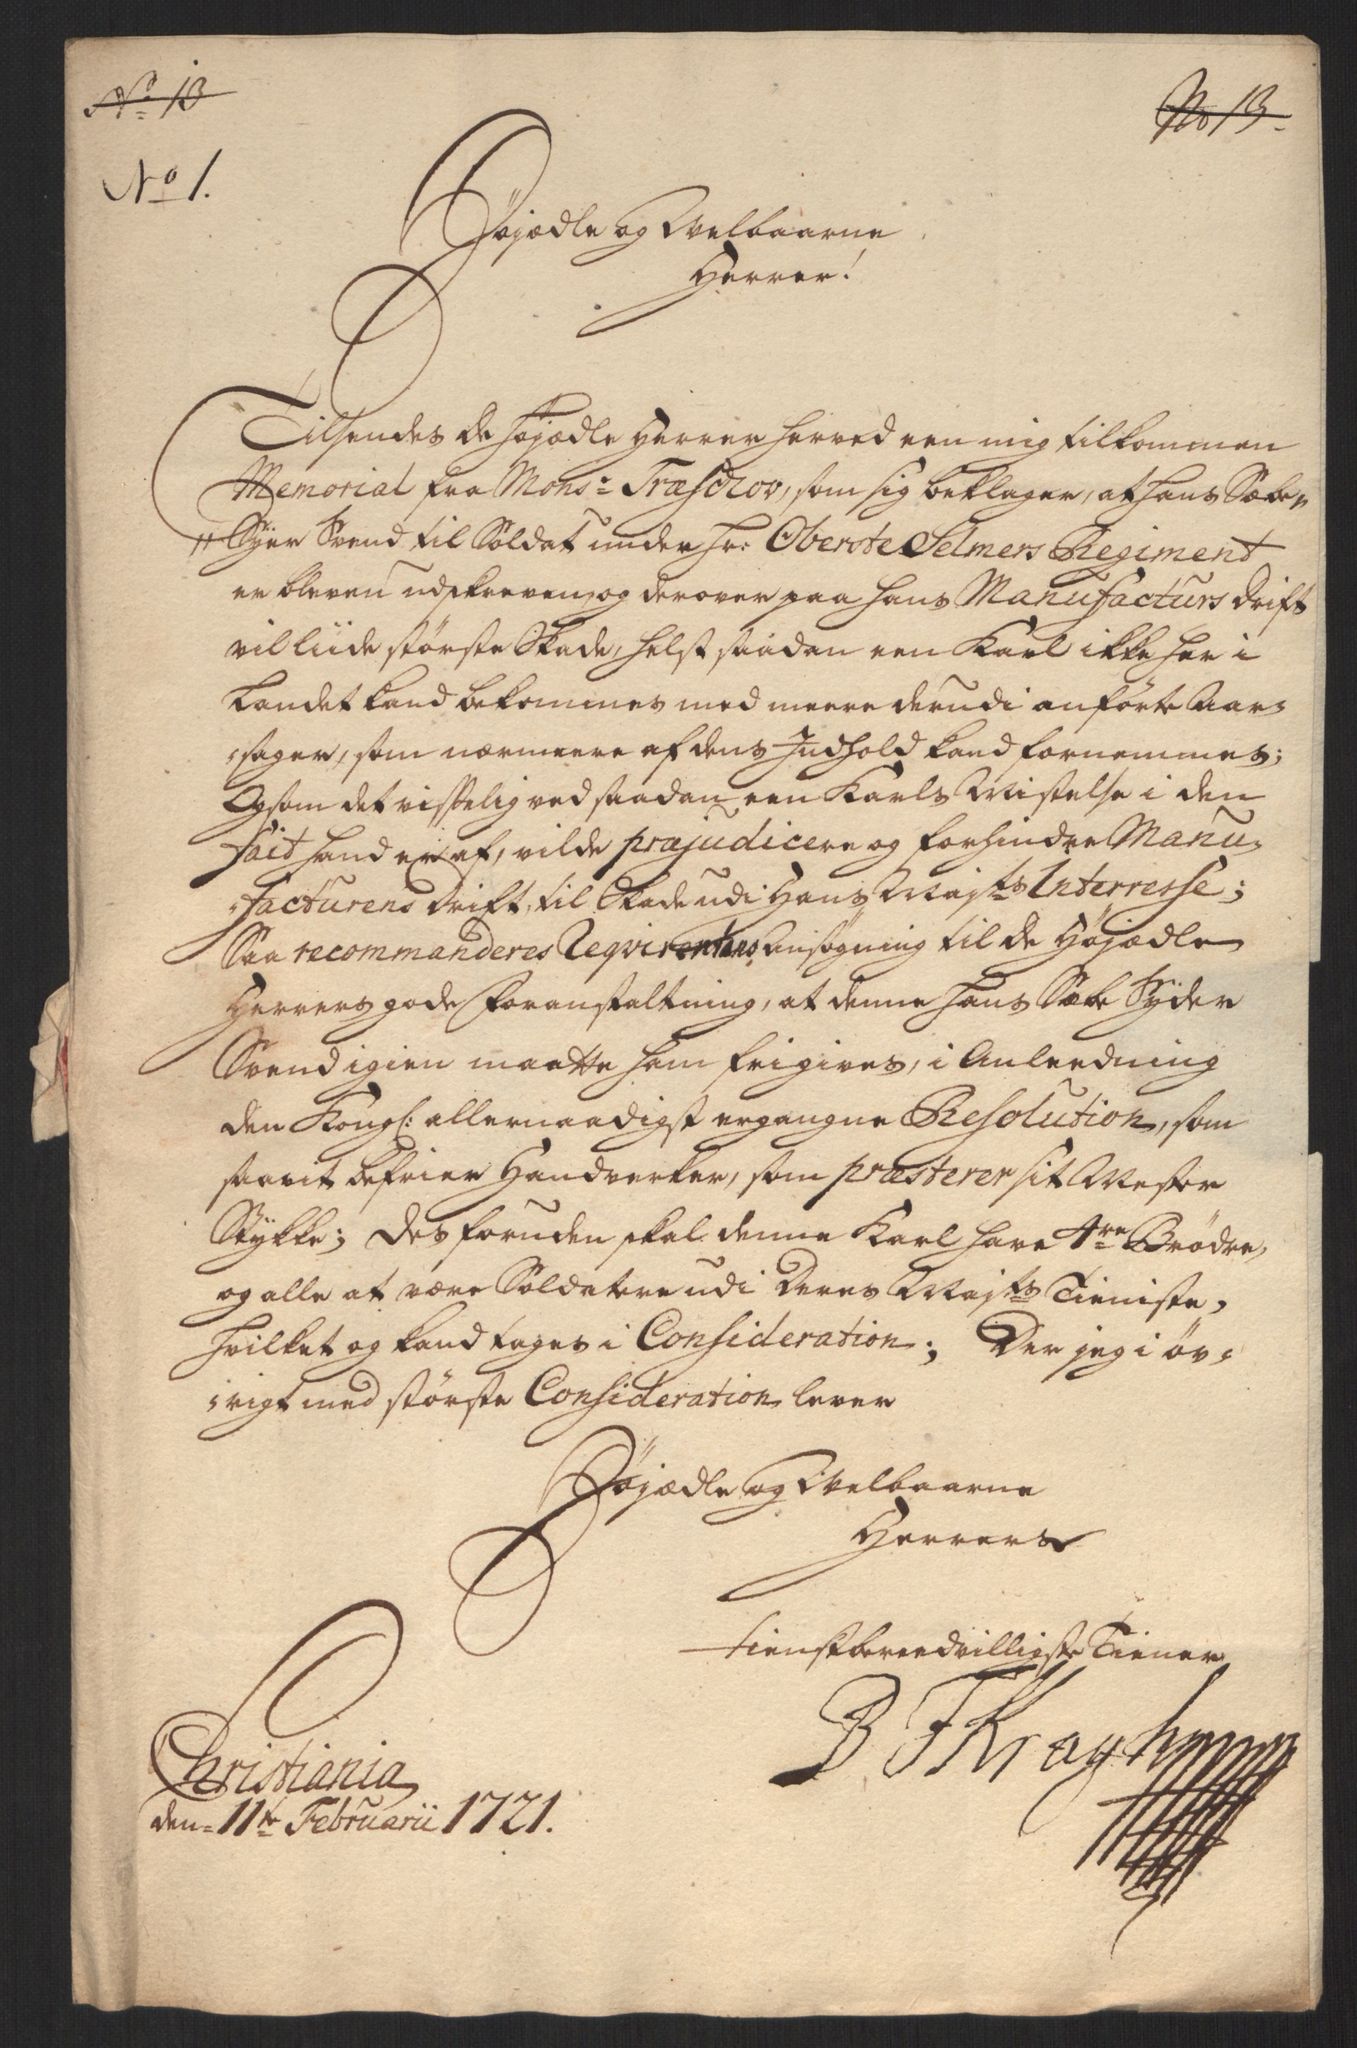 No 13
No 13
No 1.
Højædle og Welbaarne
Herrer!
Tilsendes de Højædle Herrer herved een mig tilkommen
Memorial fra Monsr: Træschov, som sig beklager, at hans Sæbe
Syer Svend til Soldat under Hr: Oberste Selmers Regiment
er bleven udskreven, og derover paa hans Manufacturs drift
vil liide største Skade, helst saadan een Karl ikke her i
Landet kand bekommes med meere derudi anførte Aar-
sager, som nærmeere af dens Indhold kand fornemmes;
Og som det visselig ved saadan een Karls Mistelse i den
fait hand er af, vilde præjudicere og forhindre Manu-
facturens drift, til Skade udi Hans Majts Interresse;
Saa recommanderes Reqvirentens Ansøgning til de Højædle
Herrers gode Foranstaltning, at denne hans Sæbe Syder
Svend igien maatte ham frigives, i Anleedning
den Kongl: allernaadigst ergangne Resolution, som
saavit befrier Handverker, som præsterer sit Mester
Stykke; Desforuden skal denne Karl have 4re Brødre,
og alle at være Soldatere udi Deres Majts Tieniste,
hvilket og kand tages i Consideration; Der jeg i øv-
rigt med største Consideration lever
Højædle og Welbaarne
Herrers
tienstbereedvilligste Tiener
B F Kragh
Christiania
den 11te Februarii 1721.